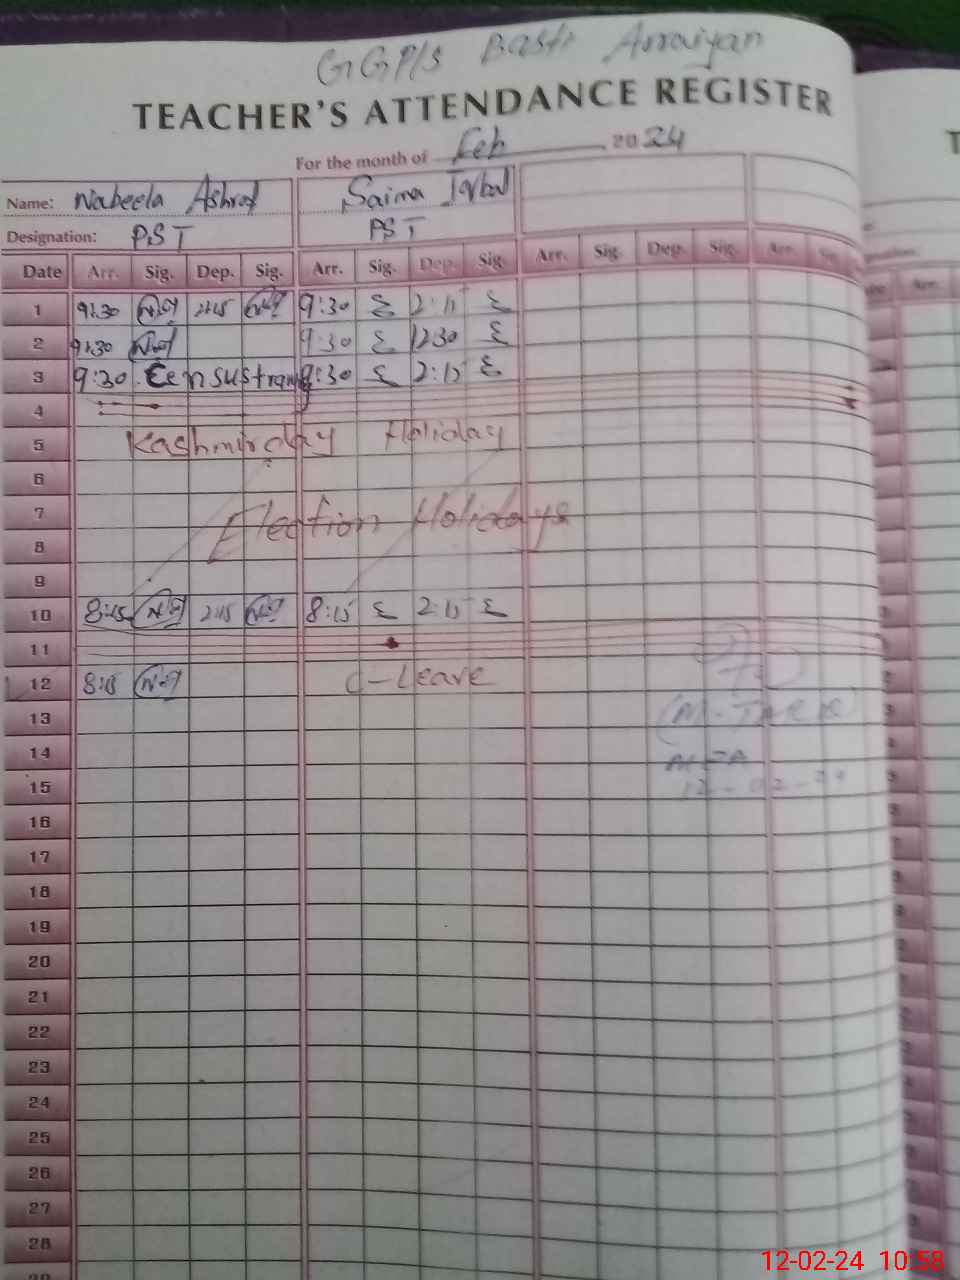 GGP/s Basti Arraiyan
TEACHER'S ATTENDANCE REGISTER
For the month of Feb 2024
Name: Nabeela Ashraf Saima Iqbal
Designation: PST PST
Date Arr. Sig. Dep. Sig. Arr. Sig. Dep. Sig. Arr. Sig. Dep. Sig. Arr.
1 9:30 2:15 9:30 2:15
2 9:30 9:30 12:30
3 9:30 Census training 9:30 2:15
4
5 Kashmir day Holiday
6
7 Election Holidays
8
9
10 8:15 2:15 8:15 2:15
11
12 8:15 C-Leave
13
14
15 12-02-24
16
17
18
19
20
21
22
23
24
25
26
27
28
12-02-24 10:58